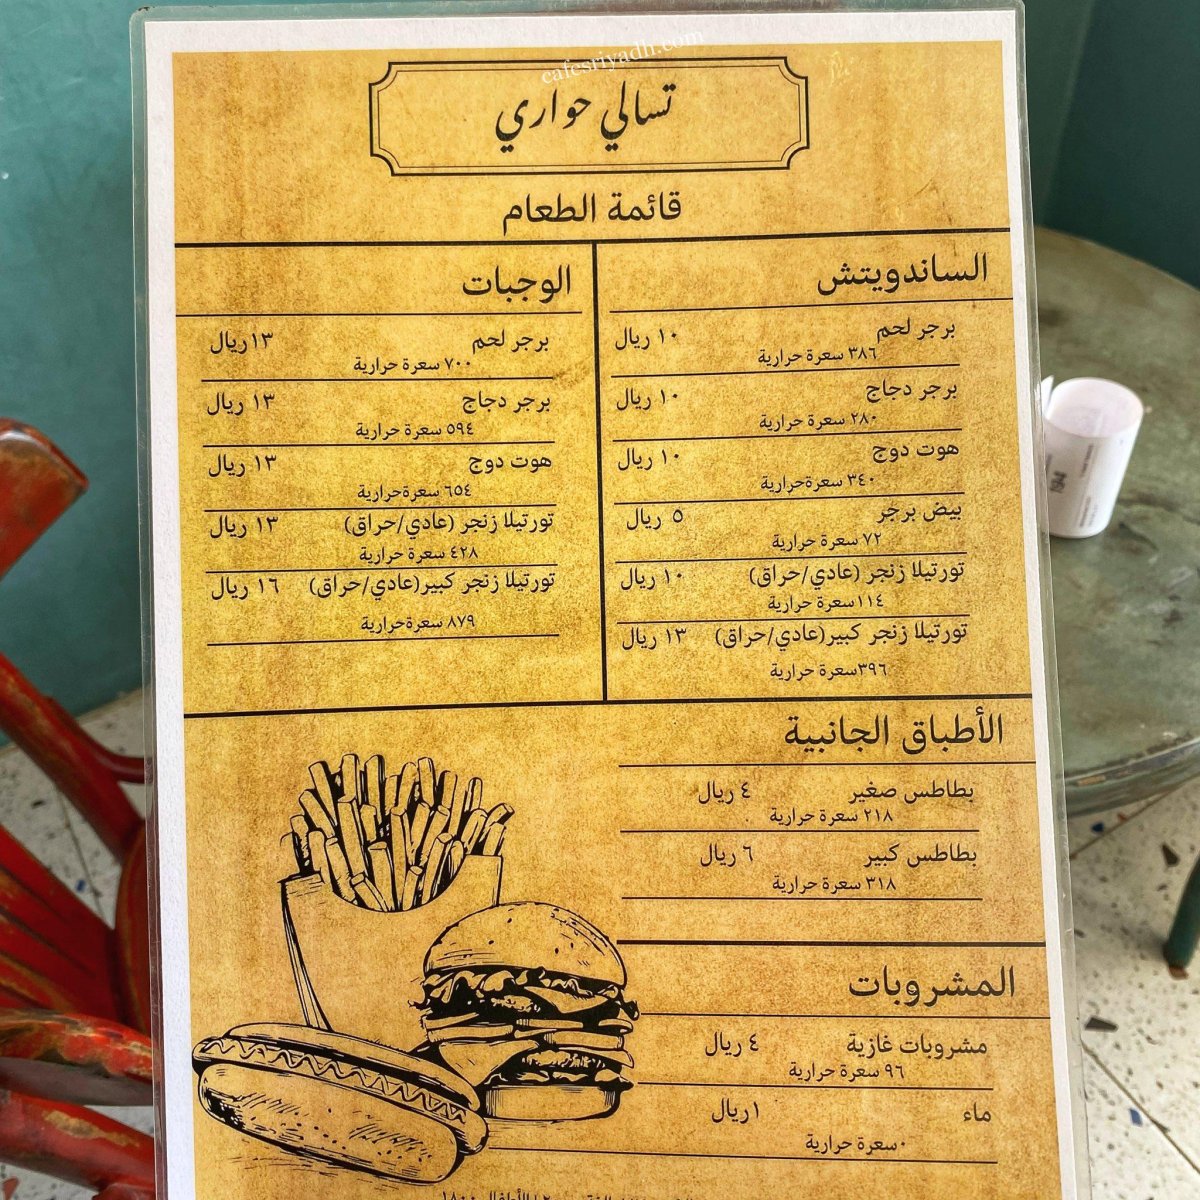 cafesriyadh.com
تسالي حواري
قائمة الطعام
الساندويتش
برجر لحم ١٠ ريال
٣٨٦ سعرة حرارية
برجر دجاج ١٠ ريال
٢٨٠ سعرة حرارية
هوت دوج ١٠ ريال
٣٤٠ سعرة حرارية
بيض برجر ٥ ريال
٧٢ سعرة حرارية
تورتيلا زنجر (عادي/حراق) ١٠ ريال
١١٤سعرة حرارية
تورتيلا زنجر كبير(عادي/حراق) ١٣ ريال
٣٩٦سعرة حرارية
الوجبات
برجر لحم ١٣ريال
٧٠٠ سعرة حرارية
برجر دجاج ١٣ ريال
٥٩٤ سعرة حرارية
هوت دوج ١٣ ريال
٦٥٤ سعرةحرارية
تورتيلا زنجر (عادي/حراق) ١٣ ريال
٤٢٨ سعرة حرارية
تورتيلا زنجر كبير(عادي/حراق) ١٦ ريال
٨٧٩ سعرةحرارية
الأطباق الجانبية
بطاطس صغير ٤ ريال
٢١٨ سعرة حرارية
بطاطس كبير ٦ ريال
٣١٨ سعرة حرارية
المشروبات
مشروبات غازية ٤ ريال
٩٦ سعرة حرارية
ماء ١ريال
٠سعرة حرارية
194